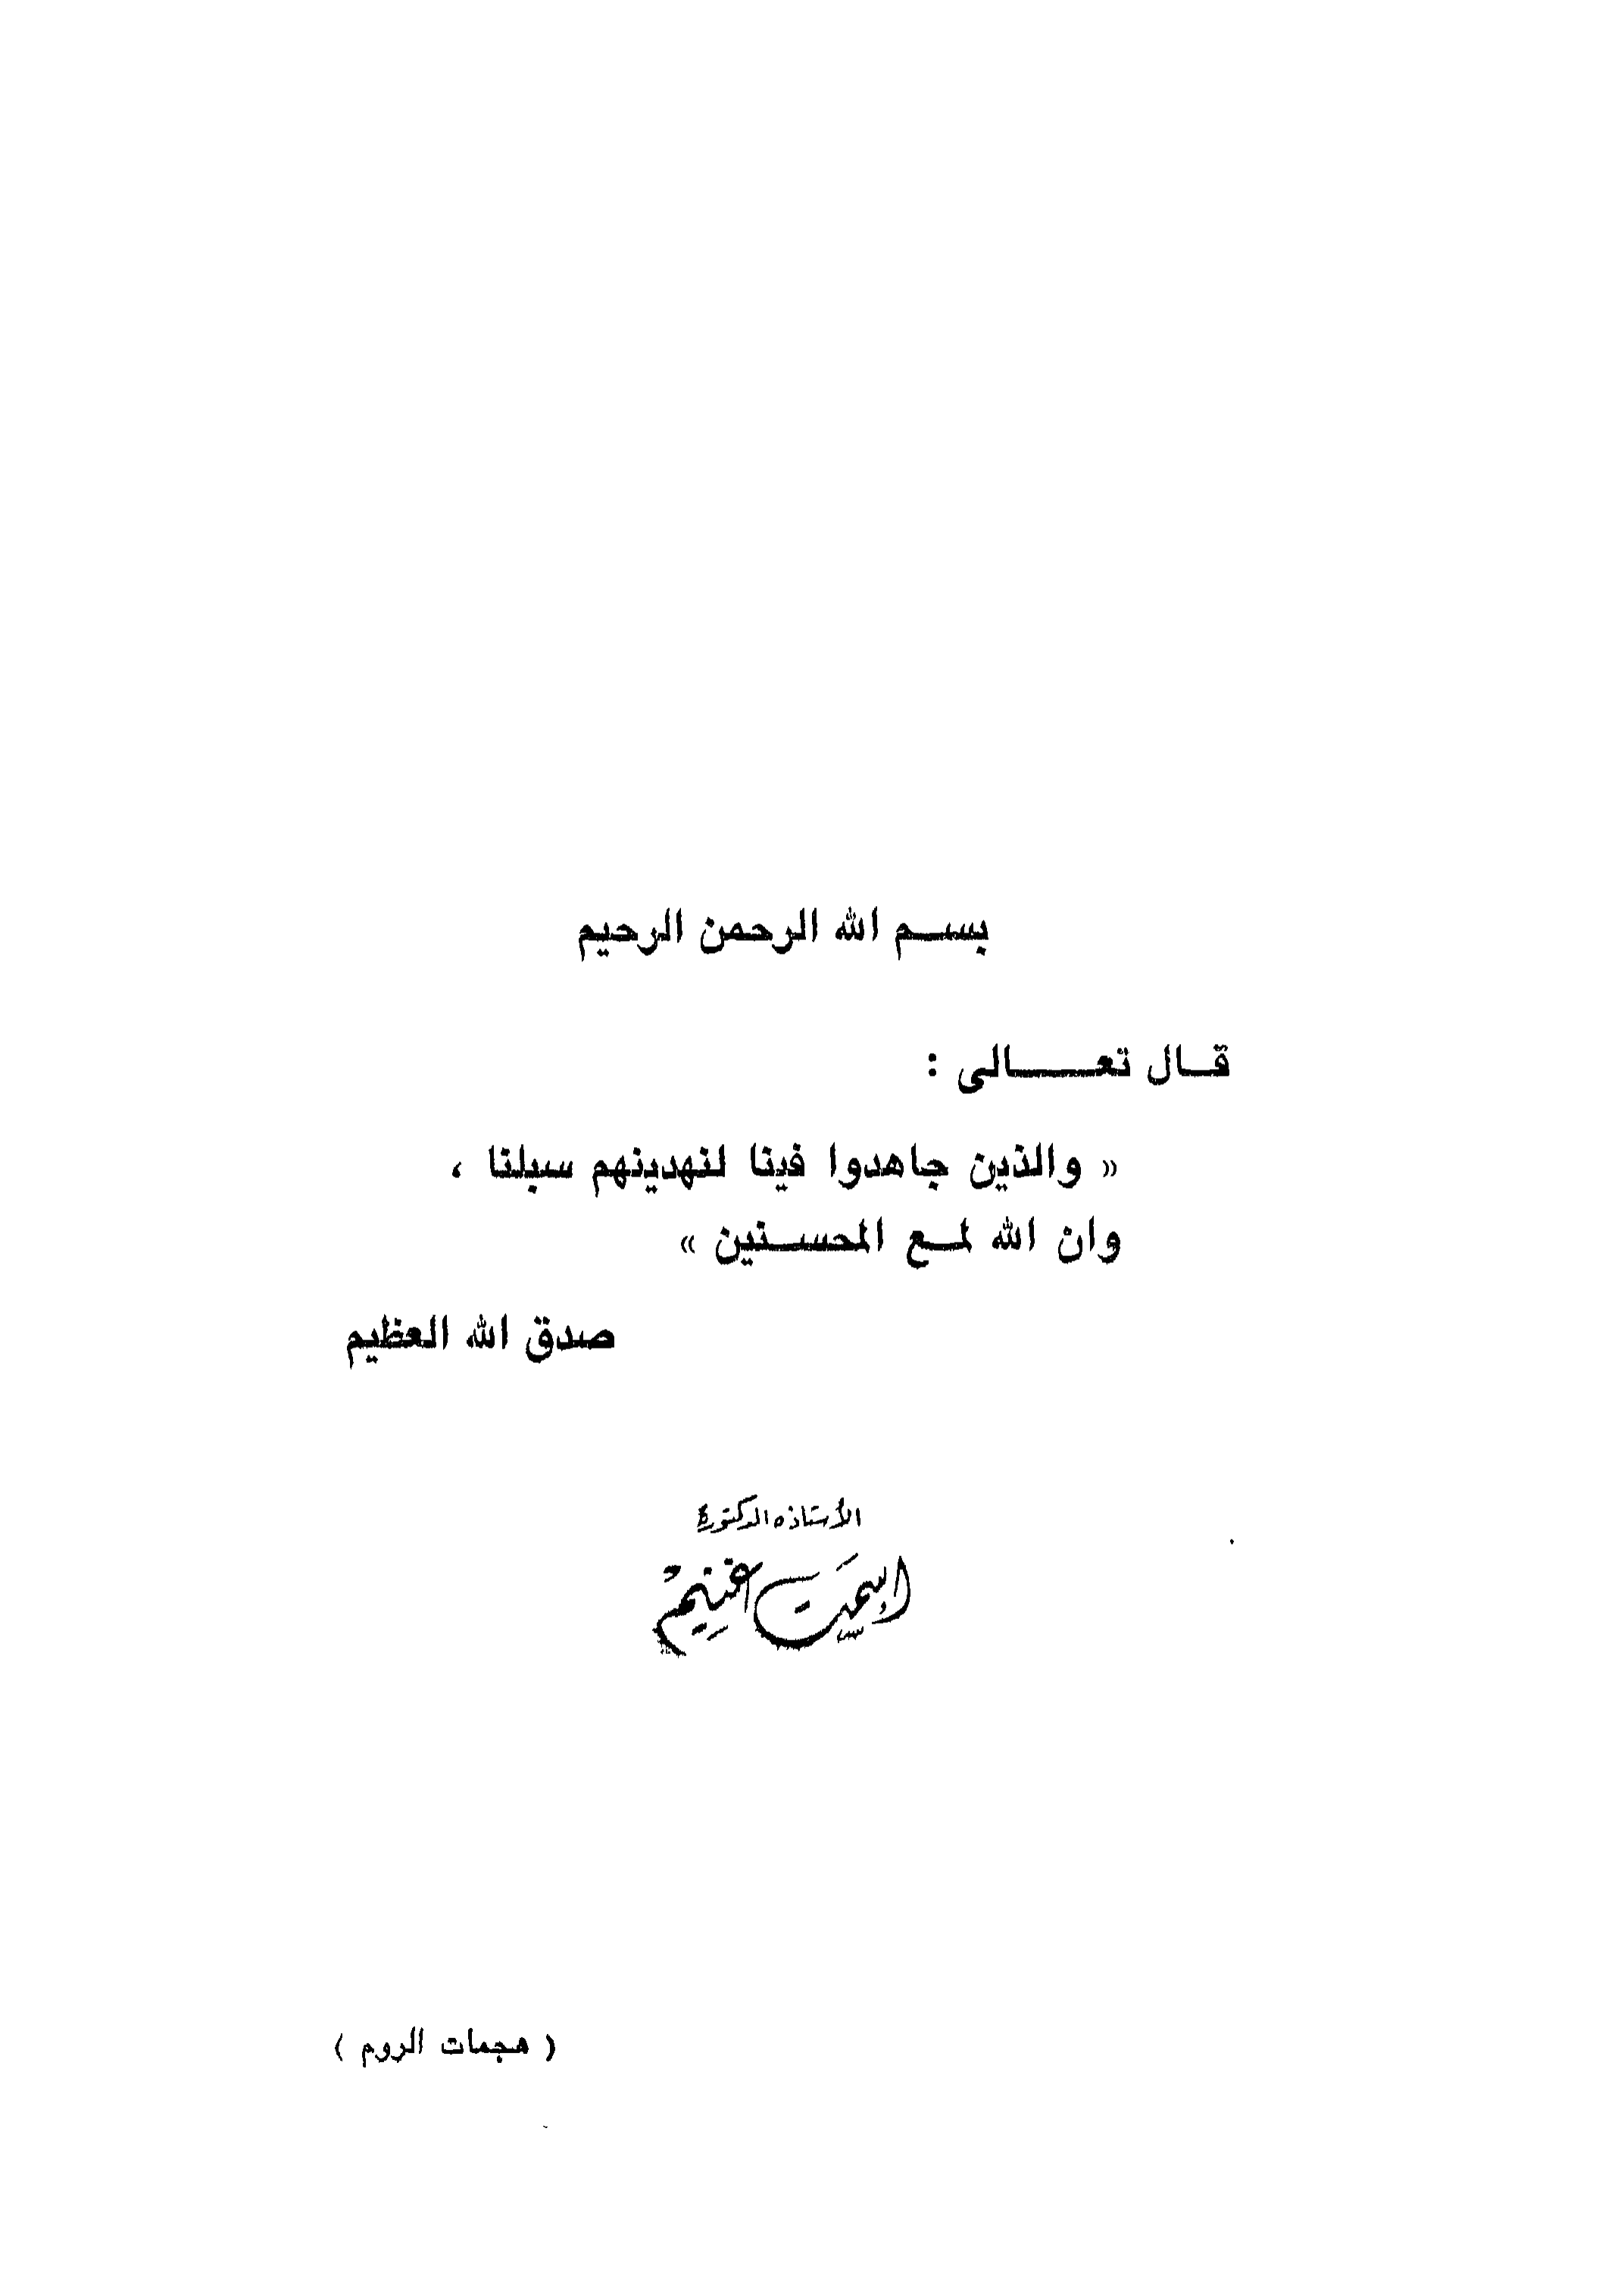 بسم الله الرحمن الرحيم
قال تعالى :
« والذين جاهدوا فينا لنهدينهم سبلنا ،
وان الله لمع المحسنين »
صدق الله العظيم
الأستاذه الدكتورة
إسمت غنيم
( هجمات الروم )